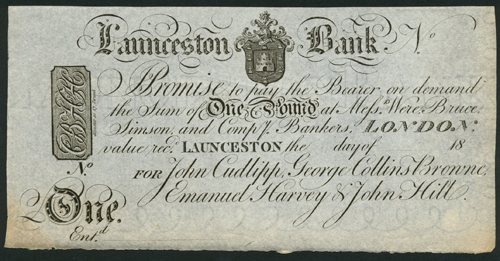 Launceston Bank. No
I Promise to pay the Bearer on demand
the Sum of One Pound at Messrs Were, Bruce,
Simson, and Compy. Bankers, LONDON:
value recd. LAUNCESTON the day of 18
No
FOR John Cudlipp, George Collins Browne,
Emanuel Harvey & John Hill.
One.
Entd.